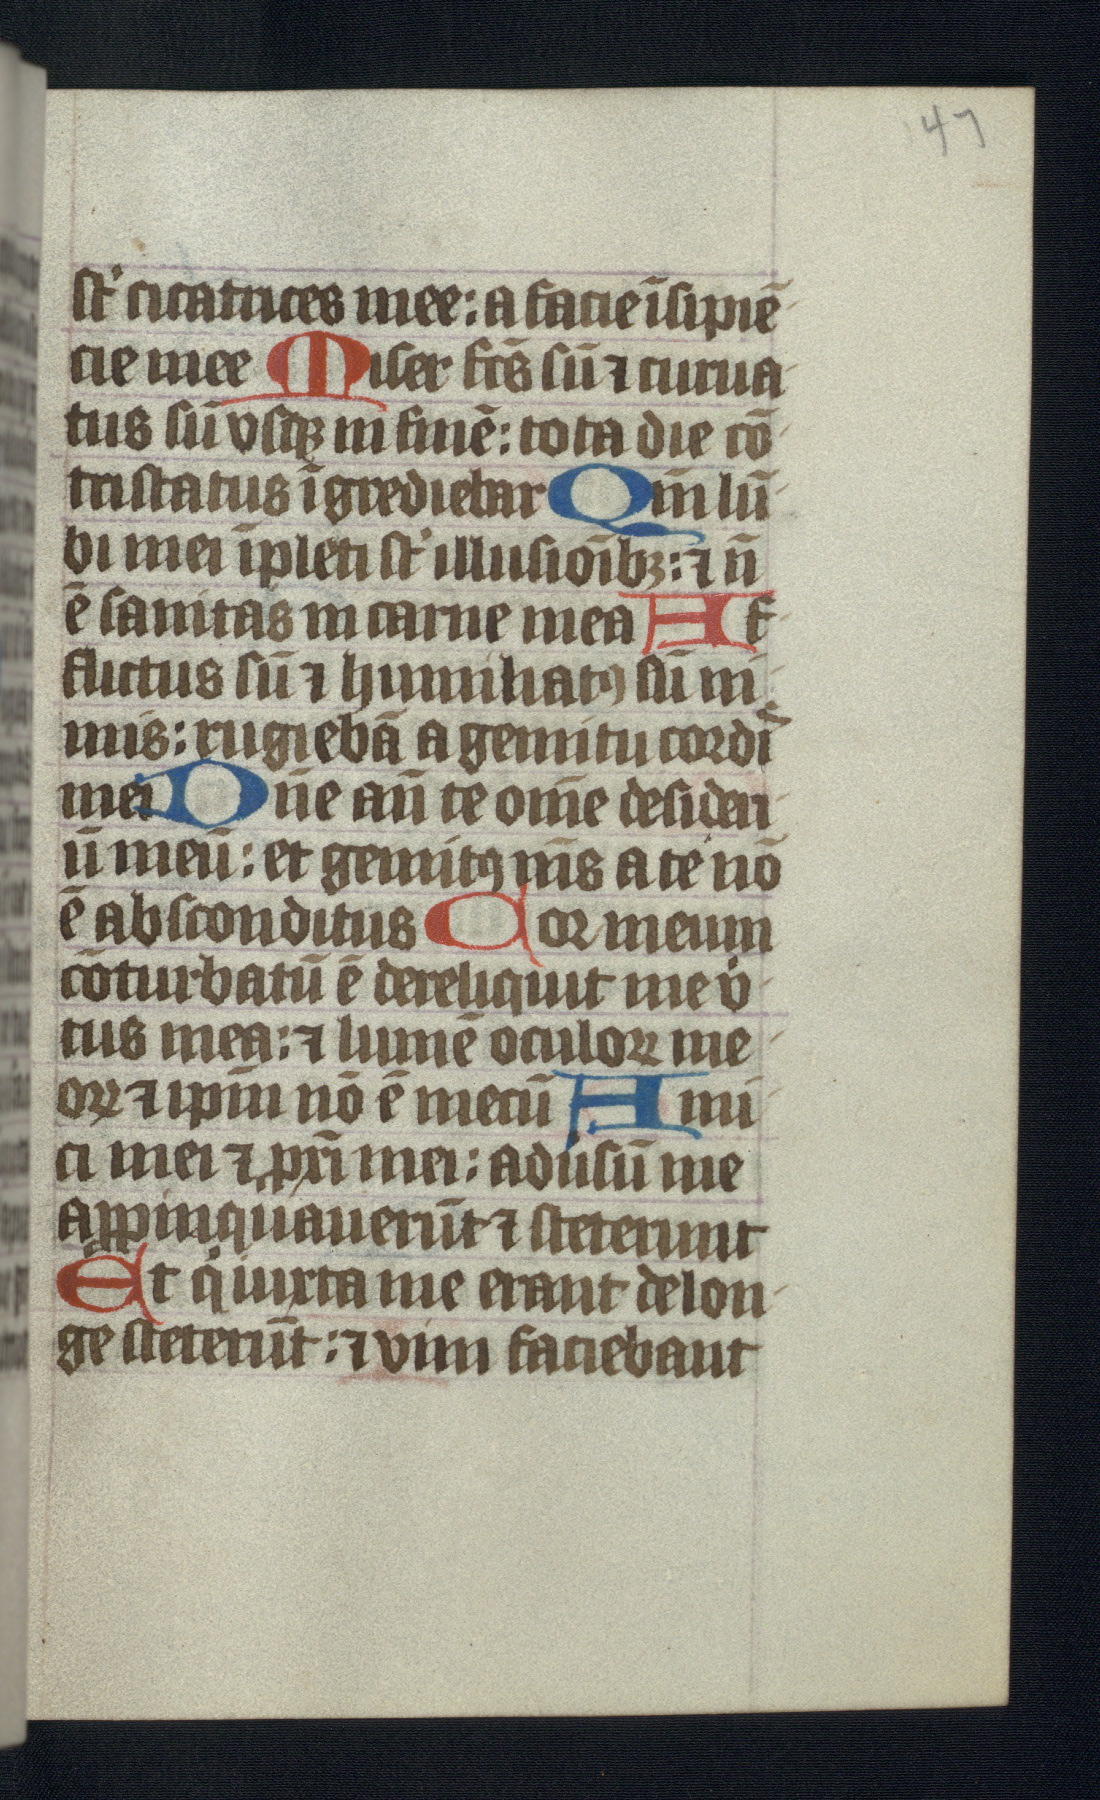 147
st' cicatrices mee: a facie īsipiē-
cie mee Miser fcs̄ sū ⁊ curua-
tus sū vsqꝫ in finē: tota die cō-
tristatus īgrediebar Qm̄ lū-
bi mei īpleti st' illusioībꝫ: ⁊ n̄
ē sanitas in carne mea Af-
flictus sū ⁊ humiliatꝯ sū ni-
mis: rugiebā a gemitu cordis
mei Dn̄e an̄ te om̄e desideri-
ū meū: et gemitꝯ ms̄ a te nō
ē absconditus Cor meum
cōturbatū ē dereliquit me v'-
tus mea: ⁊ lumē oculoꝝ me-
oꝝ ⁊ ip̄m nō ē mecū Ami-
ci mei ⁊ ꝓxi mei: adu'sū me
aꝓpinquauerūt ⁊ steterunt
Et qͥ iuxta me erant de lon-
ge steterūt: ⁊ vim faciebant